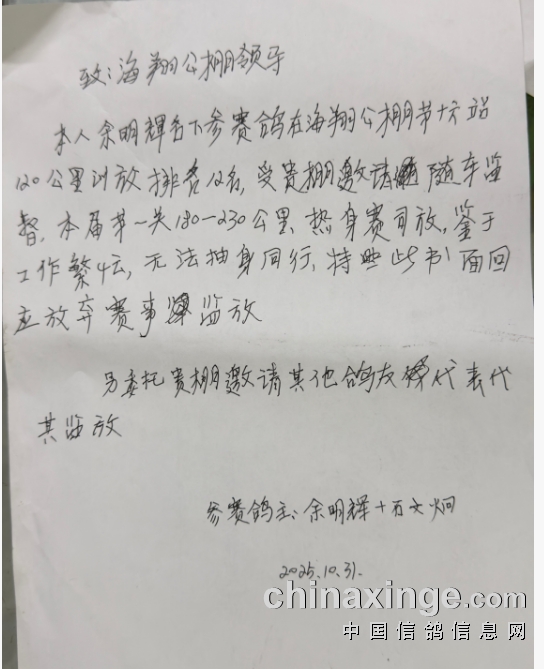 致:海翔公棚领导
本人余明辉名下参赛鸽在海翔公棚第十六站
120公里训放排名12名,受贵棚邀请随车监
督,本届第一关180—230公里热身赛司放,鉴于
工作繁忙,无法抽身同行,特此书面回
应放弃赛事监放
另委托贵棚邀请其他鸽友代表代
其监放
参赛鸽主:余明辉+石文炯
2025.10.31.
chinaxinge.com
中国信鸽信息网